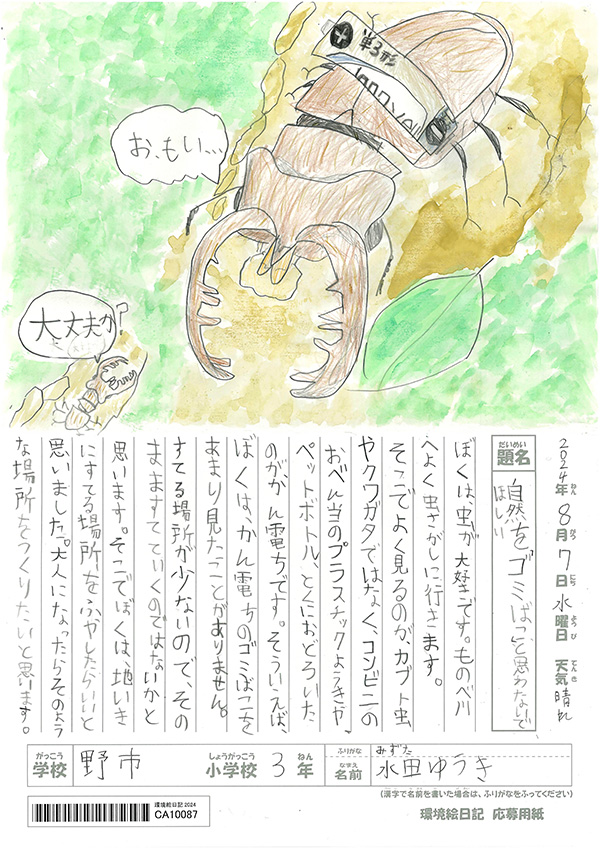 単3形
1.2V
お、もい…
大丈夫か?
2024年 8月 7日 水曜日 天気 晴れ
ねん がつ にち ようび てんき
だいめい
題名
自然を「ゴミばこ」と思わないで
ほしい
ぼくは、虫が大好きです。ものべ川
へよく虫さがしに行きます。
そこでよく見るのが、カブト虫
やクワガタではなく、コンビニの
おべん当のプラスチックようきや、
ペットボトル、とくにおどろいた
のがかん電ちです。そういえば、
ぼくは、かん電ちのゴミばこを
あまり見たことがありません。
すてる場所が少ないので、その
ままますてていくのではないかと
思います。そこでぼくは、地いき
にすてる場所をふやしたらいいと
思いました。大人になったらそのよう
な場所をつくりたいと思います。
がっこう
学校 野市
しょうがっこう
小学校 3年
ねん
ふりがな みずた
なまえ
名前 水田ゆうき
(漢字で名前を書いた場合は、ふりがなをふってください)
環境絵日記 2024
CA10087
環境絵日記 応募用紙